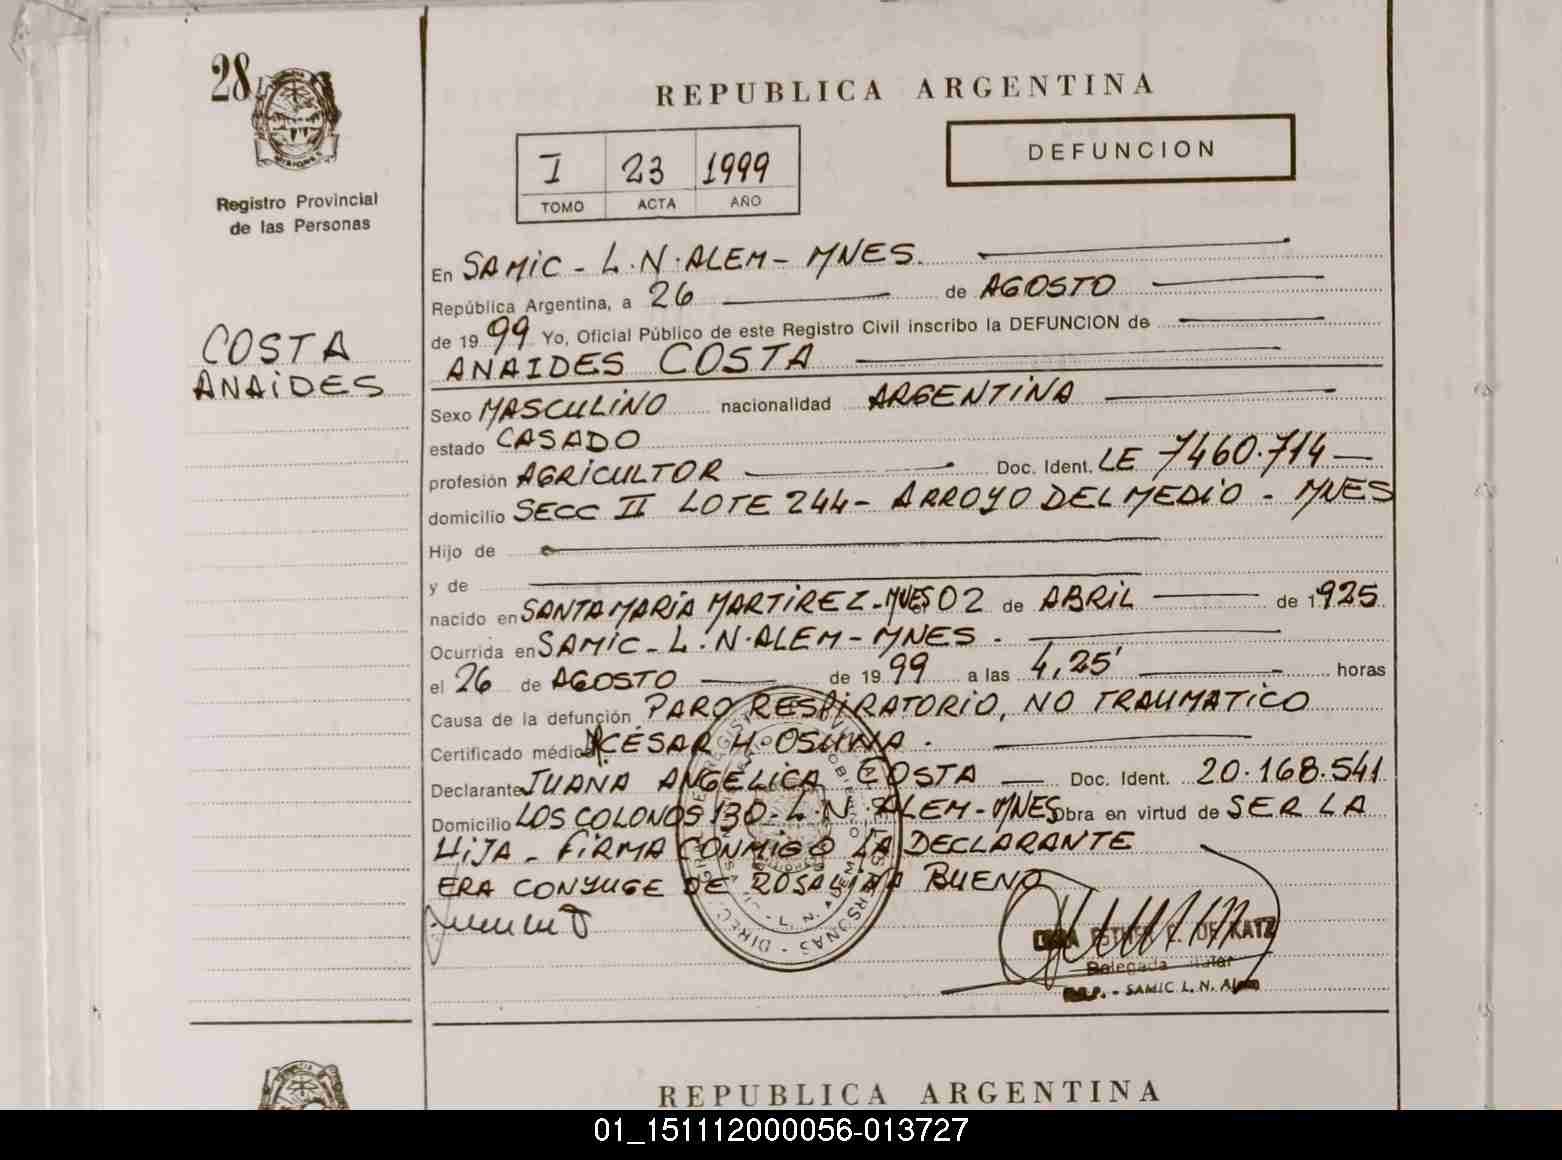 28
REPUBLICA ARGENTINA
I 23 1999
TOMO ACTA AÑO
DEFUNCION
Registro Provincial
de las Personas
COSTA
ANAIDES
En SAMIC - L.N. ALEM - MNES.
República Argentina, a 26 de AGOSTO
de 19 99 Yo, Oficial Público de este Registro Civil inscribo la DEFUNCION de
ANAIDES COSTA
Sexo MASCULINO nacionalidad ARGENTINA
estado CASADO
profesión AGRICULTOR Doc. Ident. LE 7460.714
domicilio SECC II LOTE 244 - ARROYO DEL MEDIO - MNES
Hijo de
y de
nacido en SANTA MARIA MARTIREZ - MNES 02 de ABRIL de 1925
Ocurrida en SAMIC - L.N. ALEM - MNES.
el 26 de AGOSTO de 19 99 a las 4,25' horas
Causa de la defunción PARO RESPIRATORIO, NO TRAUMATICO
Certificado médico CESAR H. OSUNA.
Declarante JUANA ANGELICA COSTA Doc. Ident. 20.168.541
Domicilio LOS COLONOS 130 - L.N. ALEM - MNES Obra en virtud de SER LA
HIJA - FIRMA CONMIGO LA DECLARANTE
ERA CONYUGE DE ROSALINA BUENO
ESTHER DE KATZ
Delegada Titular
SAMIC L. N. Alem
REPUBLICA ARGENTINA
01_151112000056-013727